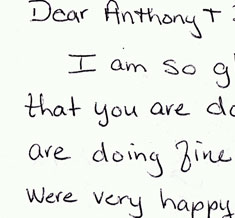 Dear Anthony +
I am so g
that you are do
are doing fine
were very happy